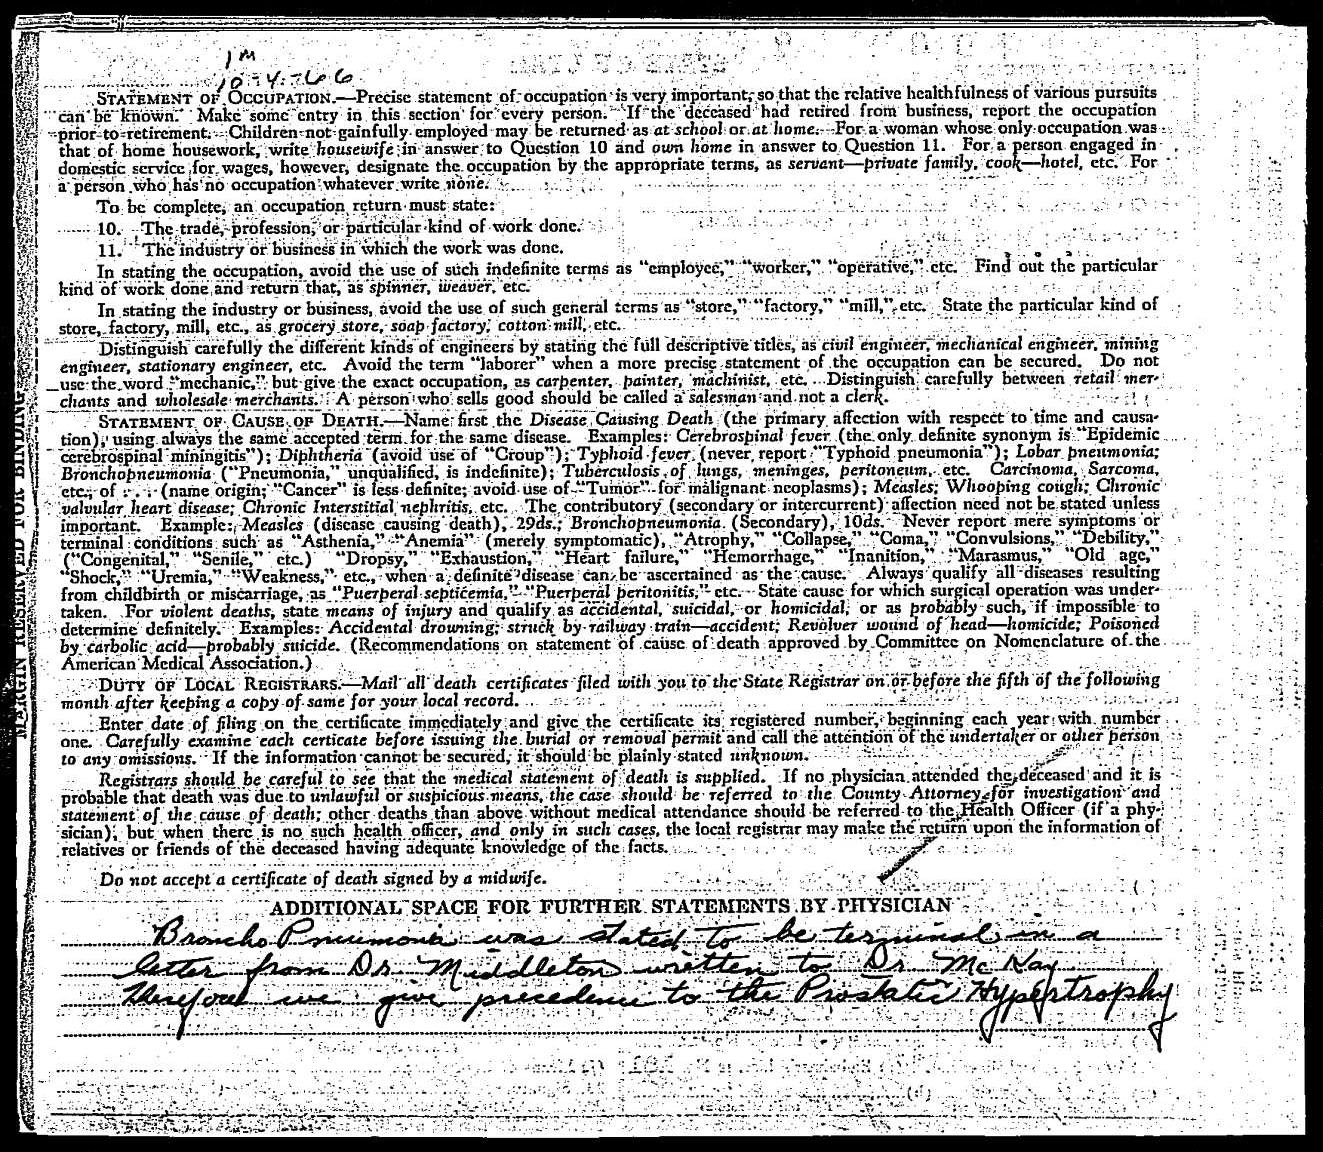 1M
10-4-66
STATEMENT OF OCCUPATION.—Precise statement of occupation is very important, so that the relative healthfulness of various pursuits
can be known. Make some entry in this section for every person. If the deceased had retired from business, report the occupation
prior to retirement. Children not gainfully employed may be returned as at school or at home. For a woman whose only occupation was
that of home housework, write housewife in answer to Question 10 and own home in answer to Question 11. For a person engaged in
domestic service for wages, however, designate the occupation by the appropriate terms, as servant—private family, cook—hotel, etc. For
a person who has no occupation whatever write none.
To be complete, an occupation return must state:
10. The trade, profession, or particular kind of work done.
11. The industry or business in which the work was done.
In stating the occupation, avoid the use of such indefinite terms as "employee," "worker," "operative," etc. Find out the particular
kind of work done and return that, as spinner, weaver, etc.
In stating the industry or business, avoid the use of such general terms as "store," "factory," "mill," etc. State the particular kind of
store, factory, mill, etc., as grocery store, soap factory, cotton mill, etc.
Distinguish carefully the different kinds of engineers by stating the full descriptive titles, as civil engineer, mechanical engineer, mining
engineer, stationary engineer, etc. Avoid the term "laborer" when a more precise statement of the occupation can be secured. Do not
use the word "mechanic," but give the exact occupation, as carpenter, painter, machinist, etc. Distinguish carefully between retail mer-
chants and wholesale merchants. A person who sells good should be called a salesman and not a clerk.
STATEMENT OF CAUSE OF DEATH.—Name first the Disease Causing Death (the primary affection with respect to time and causa-
tion), using always the same accepted term for the same disease. Examples: Cerebrospinal fever (the only definite synonym is "Epidemic
cerebrospinal miningitis"); Diphtheria (avoid use of "Croup"); Typhoid fever (never report "Typhoid pneumonia"); Lobar pneumonia;
Bronchopneumonia ("Pneumonia," unqualified, is indefinite); Tuberculosis of lungs, meninges, peritoneum, etc. Carcinoma, Sarcoma,
etc., of . . . (name origin; "Cancer" is less definite; avoid use of "Tumor" for malignant neoplasms); Measles; Whooping cough; Chronic
valvular heart disease; Chronic Interstitial nephritis, etc. The contributory (secondary or intercurrent) affection need not be stated unless
important. Example: Measles (disease causing death), 29ds.; Bronchopneumonia (Secondary), 10ds. Never report mere symptoms or
terminal conditions such as "Asthenia," "Anemia" (merely symptomatic), "Atrophy," "Collapse," "Coma," "Convulsions," "Debility,"
("Congenital," "Senile," etc.) "Dropsy," "Exhaustion," "Heart failure," "Hemorrhage," "Inanition," "Marasmus," "Old age,"
"Shock," "Uremia," "Weakness," etc., when a definite disease can be ascertained as the cause. Always qualify all diseases resulting
from childbirth or miscarriage, as "Puerperal septicemia," "Puerperal peritonitis," etc. State cause for which surgical operation was under-
taken. For violent deaths, state means of injury and qualify as accidental, suicidal, or homicidal, or as probably such, if impossible to
determine definitely. Examples: Accidental drowning; struck by railway train—accident; Revolver wound of head—homicide; Poisoned
by carbolic acid—probably suicide. (Recommendations on statement of cause of death approved by Committee on Nomenclature of the
American Medical Association.)
DUTY OF LOCAL REGISTRARS.—Mail all death certificates filed with you to the State Registrar on or before the fifth of the following
month after keeping a copy of same for your local record.
Enter date of filing on the certificate immediately and give the certificate its registered number, beginning each year with number
one. Carefully examine each certicate before issuing the burial or removal permit and call the attention of the undertaker or other person
to any omissions. If the information cannot be secured, it should be plainly stated unknown.
Registrars should be careful to see that the medical statement of death is supplied. If no physician attended the deceased and it is
probable that death was due to unlawful or suspicious means, the case should be referred to the County Attorney for investigation and
statement of the cause of death; other deaths than above without medical attendance should be referred to the Health Officer (if a phy-
sician), but when there is no such health officer, and only in such cases, the local registrar may make the return upon the information of
relatives or friends of the deceased having adequate knowledge of the facts.
Do not accept a certificate of death signed by a midwife.
ADDITIONAL SPACE FOR FURTHER STATEMENTS BY PHYSICIAN
Broncho Pneumonia was stated to be terminal in a
letter from Dr. Middleton written to Dr McKay
therefore we give precedence to the Prostatic Hypertrophy
MARGIN RESERVED FOR BINDING